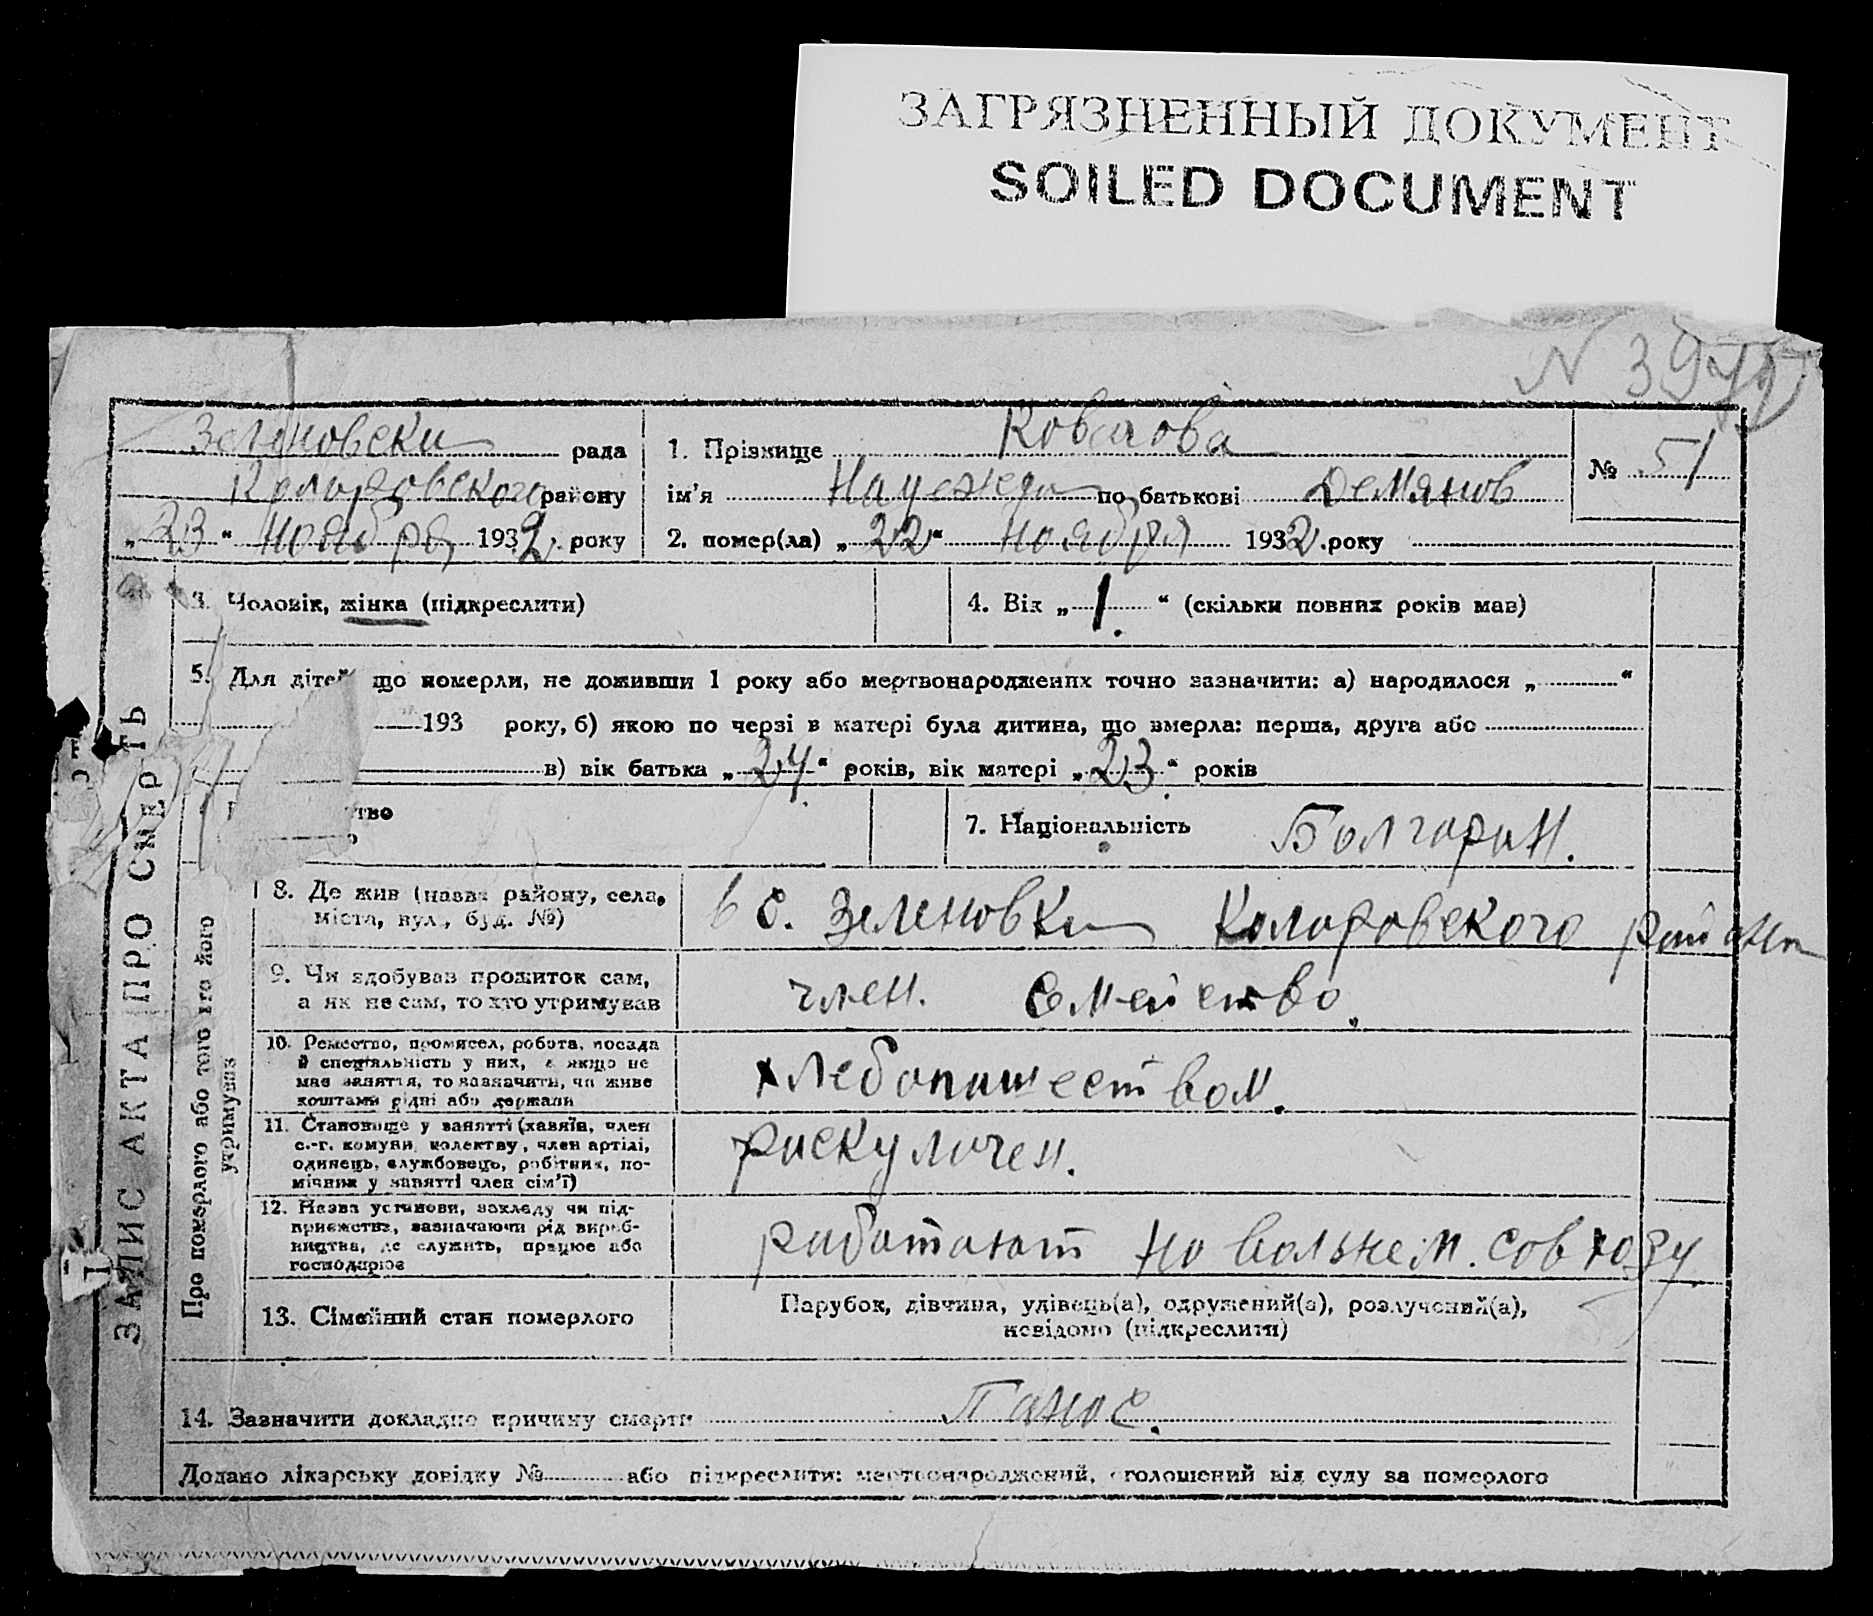 ЗАГРЯЗНЕННЫЙ ДОКУМЕНТ
SOILED DOCUMENT
N 39
Зеленовски рада
Коларовского району
„23“ ноября 1932 року
1. Прізвище Ковалова
ім'я Надежда по батькові Демянов
2. помер(ла) „22“ ноября 1932 року
№ 51
ЗАПИС АКТА ПРО СМЕРТЬ
3. Чоловік, жінка (підкреслити)
4. Вік „1.“ (скільки повних років мав)
5. Для дітей що померли, не доживши 1 року або мертвонароджених точно зазначити: а) народилося „ “
193 року, б) якою по черзі в матері була дитина, що вмерла: перша, друга або
в) вік батька „24“ років, вік матері „23“ років
тво
7. Національність Болгарин.
Про померлого або того хто його утримував
8. Де жив (назва району, села,
міста, вул., буд. №)
в с. Зеленовки Коларовского района
9. Чи здобував прожиток сам,
а як не сам, то хто утримував
член. Семейство.
10. Ремество, промисел, робота, посада
й спеціяльність у них, а якщо не
має заняття, то зазначити, чи живе
коштами рідні або держави
хлебопашеством.
11. Становище у занятті (хазяїн, член
с.-г. комуни, колективу, член артілі,
одинець, службовець, робітник, по-
мічник у занятті член сім'ї)
раскулачен.
12. Назва установи, закладу чи під-
приємства, зазначаючи рід вироб-
ництва, де служить, працює або
господарює
работают совхозу
13. Сімейний стан померлого
Парубок, дівчина, удівець(а), одружений(а), розлучений(а),
невідомо (підкреслити)
14. Зазначити докладно причину смерти Панос.
Додано лікарську довідку № або підкреслити: мертвонароджений, оголошений від суду за померлого